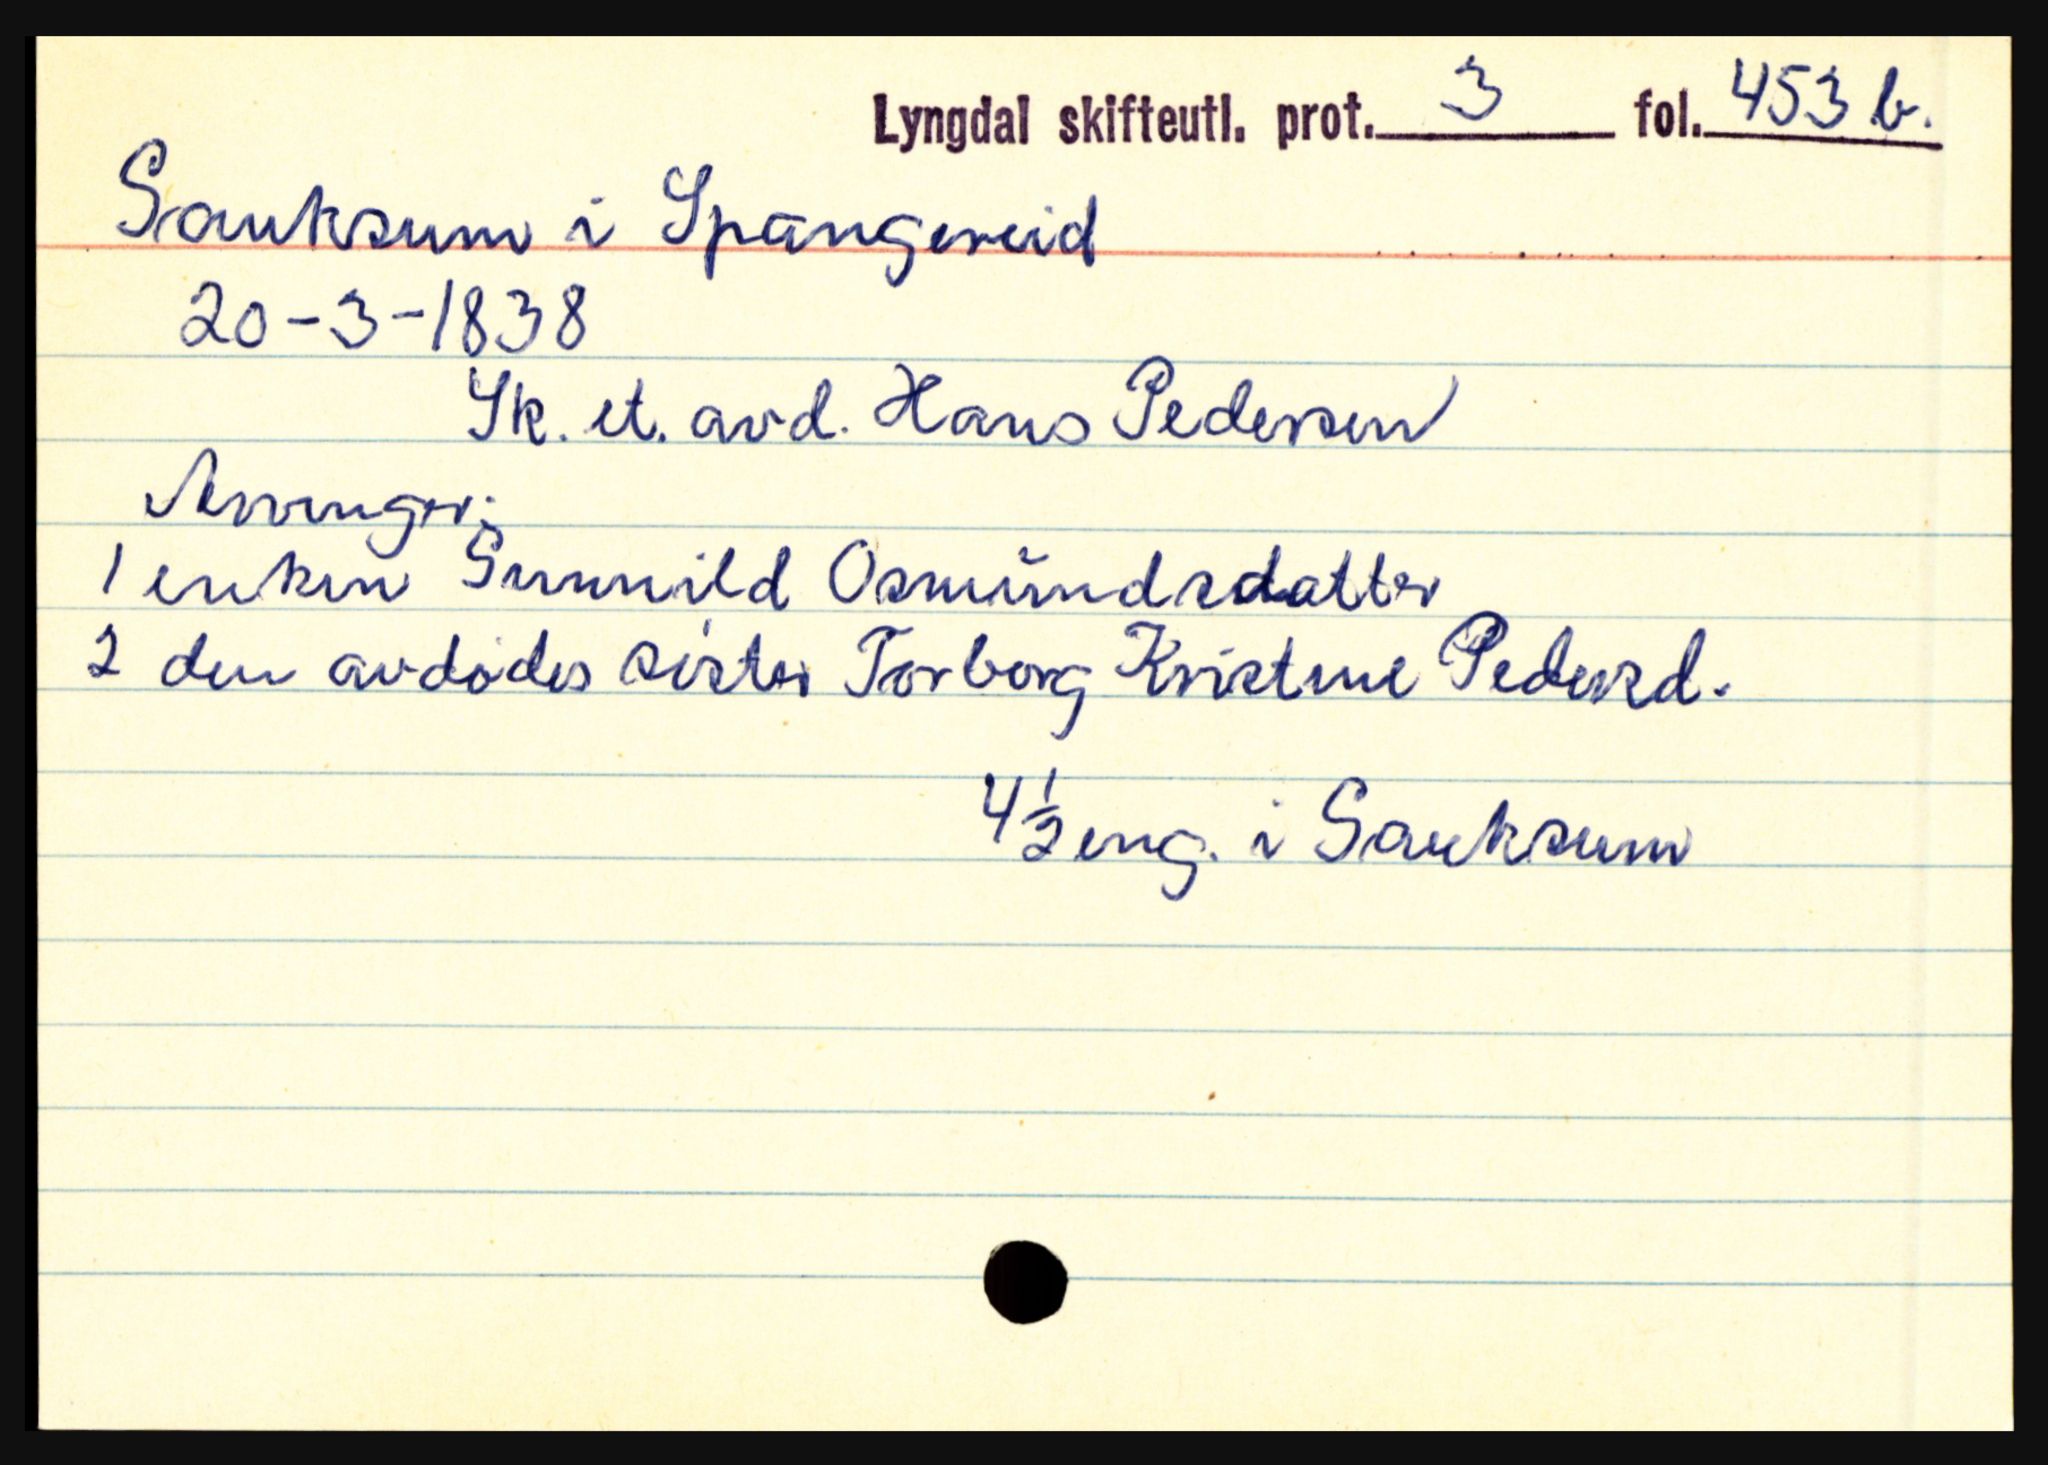 Lyngdal skifteutl. prot. 3 fol. 453 b.
Sauksum i Spangereid
20-3-1838
Sk. et. avd. Hans Pedersen
Arvinger:
1 enken Gunnild Osmŭndsdatter
2 den avdødes sister Torborg Kristine Pedersd.
4 1/2 eng. i Sauksum